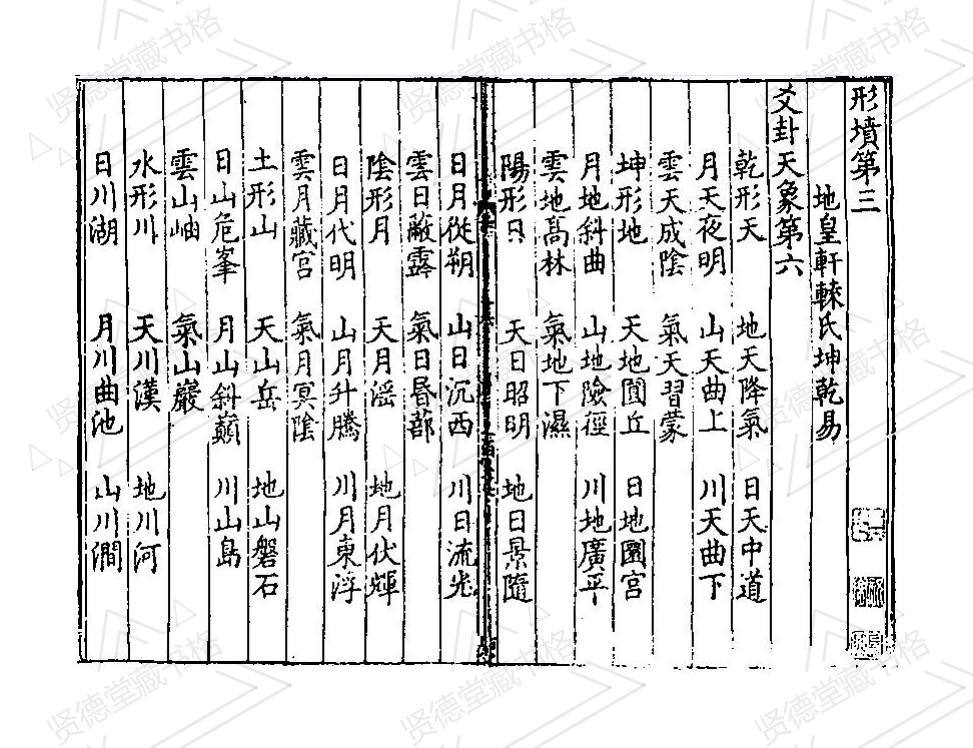 形墳第三
地皇軒轅氏坤乾易
爻卦天象第六
乾形天 地天降氣 日天中道
月天夜明 山天曲上 川天曲下
雲天成陰 氣天習蒙
坤形地 天地圓丘 日地圜宫
月地斜曲 山地險徑 川地廣平
雲地高林 氣地下濕
陽形日 天日昭明 地日景隨
日月從朔 山日沉西 川日流光
雲日蔽露 氣日昬蔀
陰形月 天月淫 地月伏輝
日月代明 山月升騰 川月東浮
雲月藏宫 氣月冥陰
土形山 天山岳 地山磐石
日山危峯 月山斜巔 川山島
雲山岫 氣山巖
水形川 天川漢 地川河
日川湖 月川曲池 山川澗
贤德堂藏书格